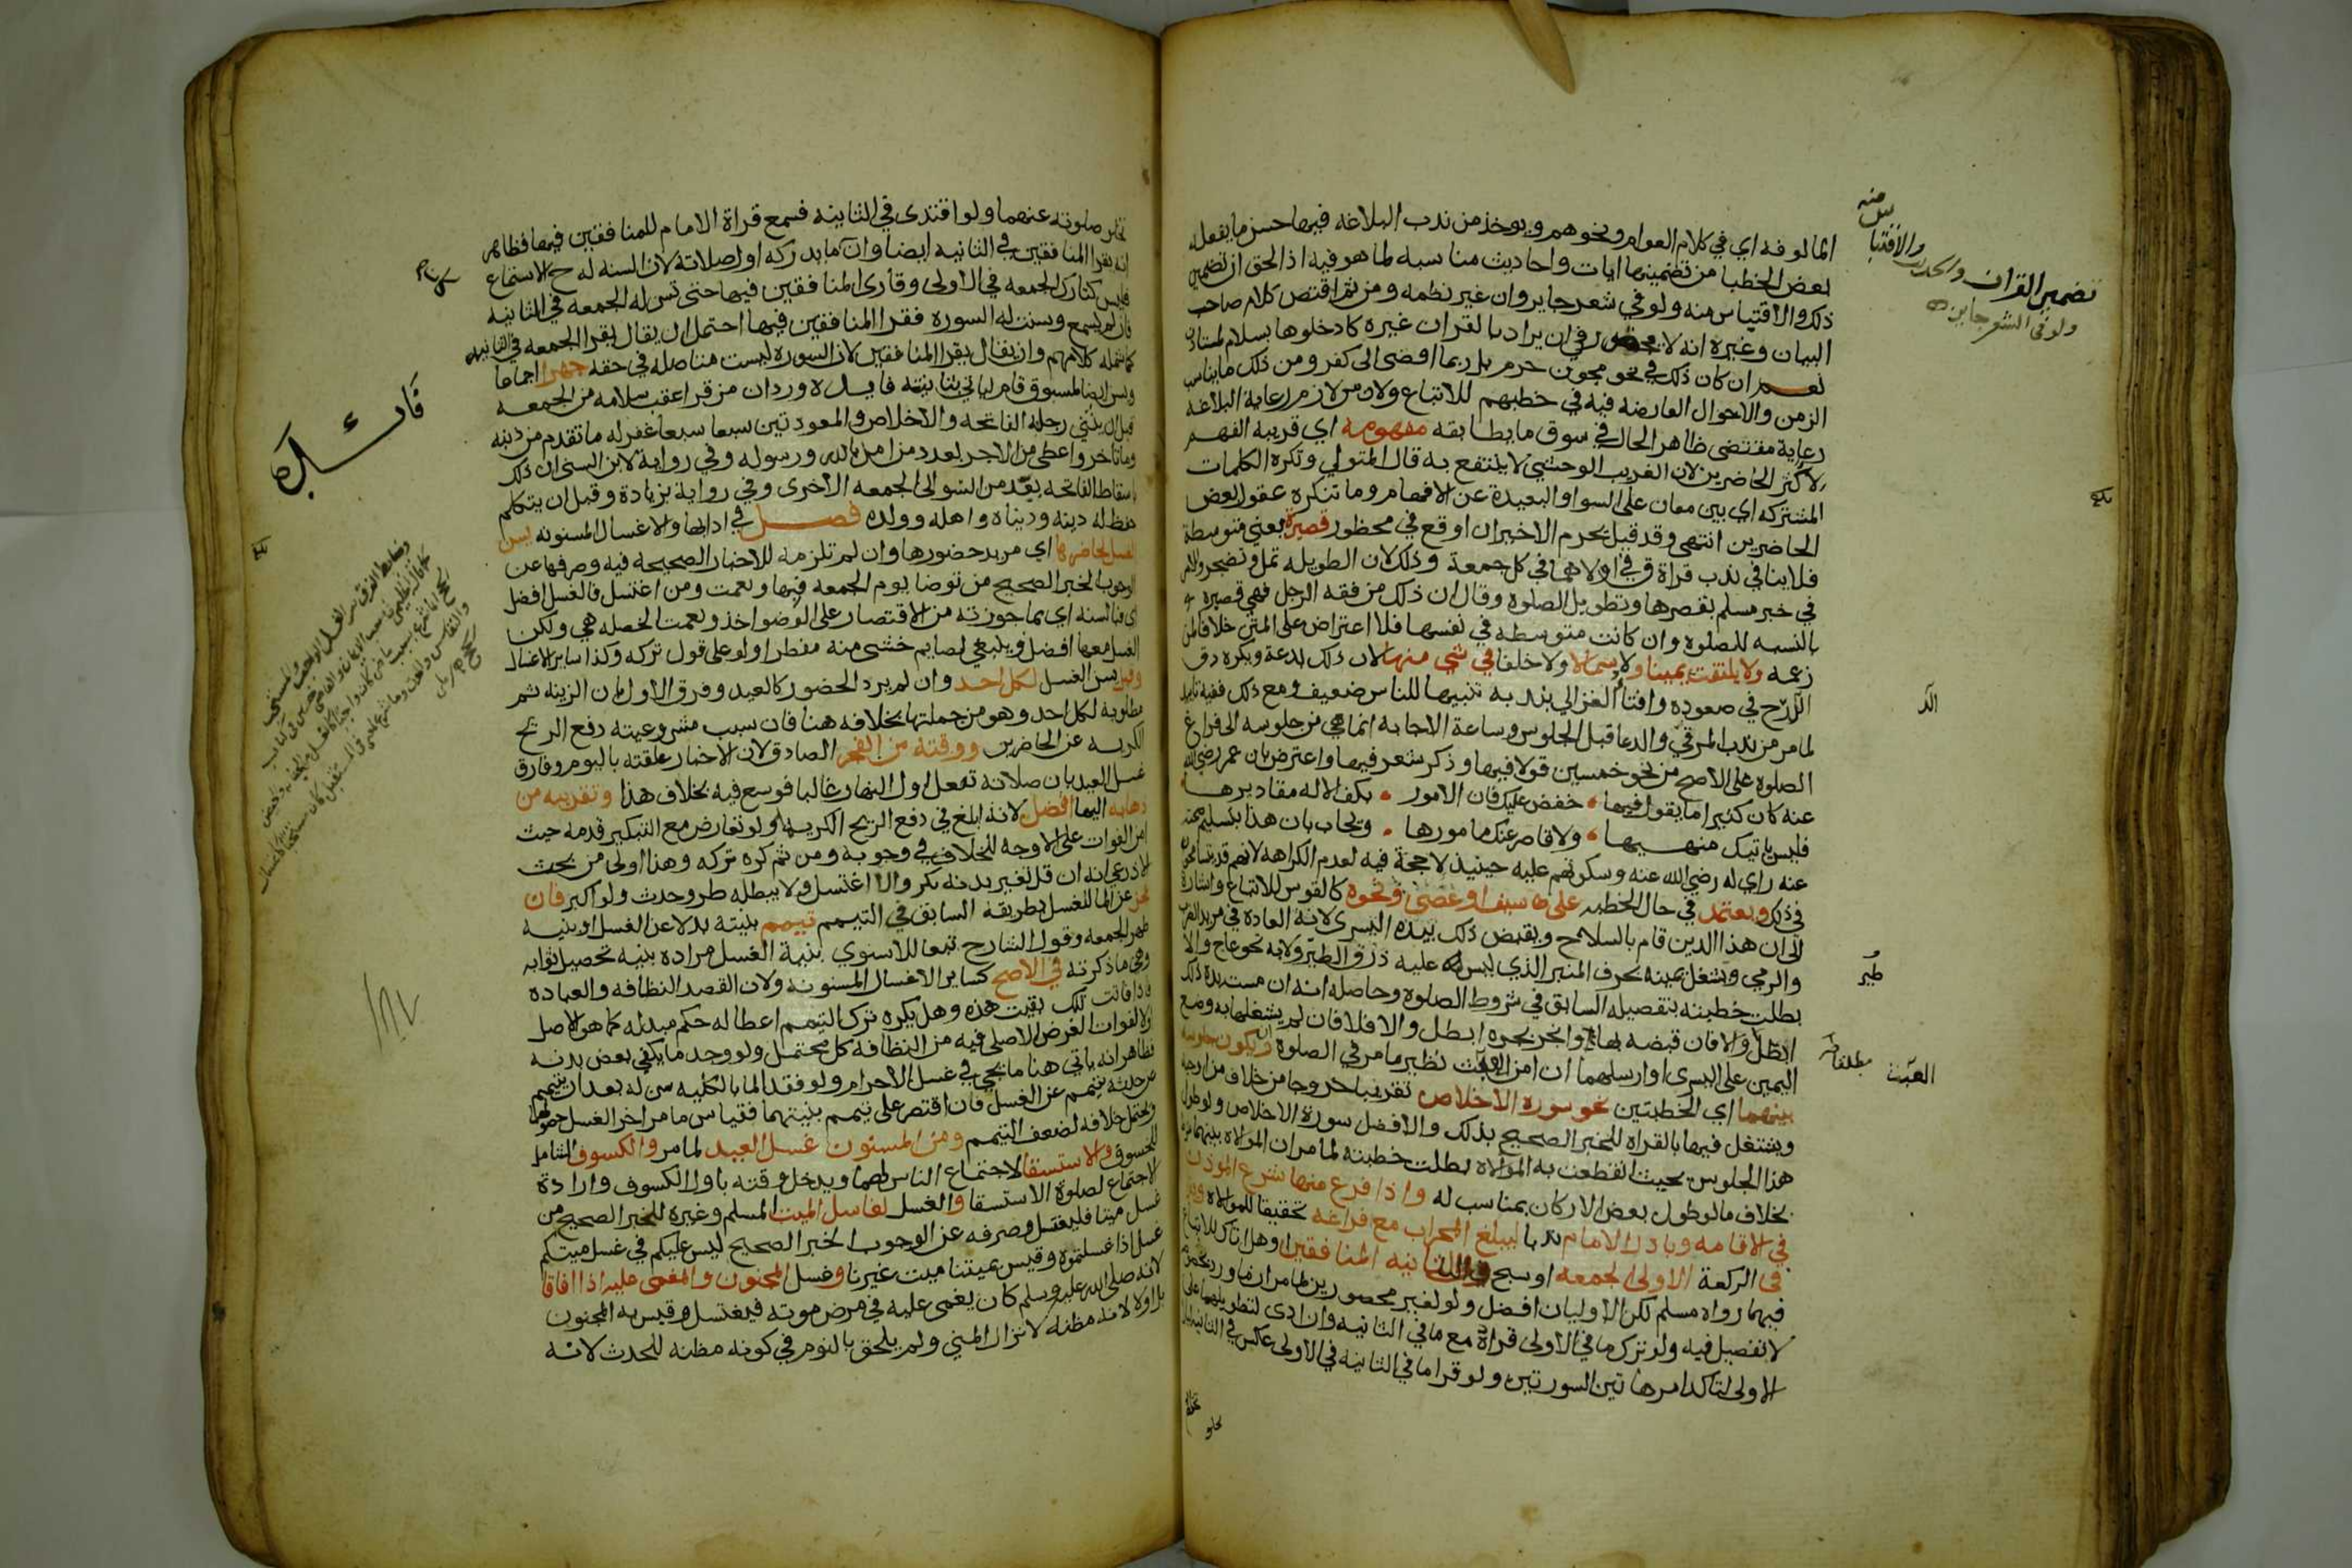 المالوفه اي في كلام العوام ونحوهم ويوخذ من ندب البلاغه فيها حسن ما يفعله
بعض الخطبا من تضمينها ايات واحاديث مناسبه لما هو فيه اذ الحق ان تضمين
ذلك والاقتباس منه ولو في شعر جايز وان غير نظمه ومن ثم اقتضى كلام صاحب
البيان وغيره انه لا محظور في ان يراد بالقران غيره كادخلوها بسلام لمستاذن
نعم ان كان ذلك في نحو مجون حرم بل ربما افضى الى كفر ومن ذلك ما يناسب
الزمن والاحوال العارضه فيه في خطبهم للاتباع ولان من لازم رعاية البلاغه
رعاية مقتضى ظاهر الحال في سوق ما يطابقه مفهومه اي قريبه الفهم
لاكثر الحاضرين لان الغريب الوحشي لا ينتفع به قال المتولي وتكره الكلمات
المشتركه اي بين معان على السوا والبعيدة عن الافهام وما تنكره عقول بعض
الحاضرين انتهى وقد قيل يحرم الاخيران اوقع في محظور قصيرة يعني متوسطة
فلا ينافي ندب قراة ق في اولاهما في كل جمعة وذلك لان الطويله تمل وتضجر وللامر
في خبر مسلم بقصرها وتطويل الصلوة وقال ان ذلك من فقه الرجل فهي قصيره
بالنسبه للصلوه وان كانت متوسطه في نفسها فلا اعتراض على المتن خلافا لمن
زعمه ولا يلتفت يمينا ولا شمالا ولا خلفا في شي منها لان ذلك بدعة ويكره دق
الدرج في صعوده وافتا الغزالي بندبه تنبيها للناس ضعيف ومع ذلك ففيه تاييد
لما مر من ندب المرقي والدعا قبل الجلوس وساعة الاجابه انما هي من جلوسه الى فراغ
الصلوه على الاصح من نحو خمسين قولا فيها وذكر شعر فيها واعترض بان عمر رضي الله
عنه كان كثيرا ما يقول فيها خفض عليك فان الامور بكف الاله مقاديرها
فليس باتيك منهيها ولا قاصر عنك مامورها ويجاب بان هذا بتسليم صحته
عنه راي له رضي الله عنه وسكوتهم عليه حينيذ لا حجة فيه لعدم الكراهه لانهم قد يتسامحون
في ذلك ويعتمد في حال الخطبه على سيف او عصى ونحوه كالقوس للاتباع واشارة
الى ان هذا الدين قام بالسلاح ويقبض ذلك بيده اليسرى لانه العاده في مريد الضرب
والرمي ويشغل يمينه بحرف المنبر الذي ليس عليه ذرق الطير ولا به نحو عاج والا
بطلت خطبته بتفصيله السابق في شروط الصلوه وحاصله انه ان مست يده ذلك
ابطل والا فان قبضه بها وانجر بجره ابطل والا فلا فان لم يشغلها به وضع
اليمين على اليسرى او ارسلهما ان امن العبث نظير ما مر في الصلوة وان يكون جلوسه
بينهما اي الخطبتين نحو سورة الاخلاص تقريبا خروجا من خلاف من اوجبه
ويشتغل فيها بالقراه للخبر الصحيح بذلك والافضل سورة الاخلاص ولو طول
هذا الجلوس بحيث انقطعت به الموالاه بطلت خطبته لما مر ان الموالاه بينهما شرط
بخلاف ما لو طول بعض الاركان بمناسب له واذا فرغ منها شرع الموذن
في الاقامه وبادر الامام ندبا ليبلغ المحراب مع فراغه تحقيقا للموالاه
في الركعة الاولى الجمعه او سبح وفي الثانيه المنافقين او هل اتاك للاتباع
فيهما رواه مسلم لكن الاوليان افضل ولو لغير محصورين لما مر ان ما ورد بخصوصه
لا تفصيل فيه ولو ترك ما في الاولى قراه مع ما في الثانيه وان ادى لتطويلها على
الاولى لتاكد امر هاتين السورتين ولو قرا ما في الثانيه في الاولى عكس في الثانيه ليلا
تخلو
تضمين القران والحديث والاقتباس منه
ولو في الشعر جايز
الد
طير
العبث
مطلقا
تخلو صلوته عنهما ولو اقتدى في الثانيه فسمع قراة الامام للمنافقين فيها فظاهر
انه يقرا المنافقين في الثانيه ايضا وان ما يدركه اول صلاته لان السنه له ح الاستماع
فليس كتارك الجمعه في الاولى وقارى المنافقين فيها حتى تسن له الجمعه في الثانيه
فان لم يسمع وسنت له السورة فقرا المنافقين فيها احتمل ان يقال يقرا الجمعه في الثانيه
كما شمله كلامهم وان يقال يقرا المنافقين لان السوره ليست متاصله في حقه جهرا اجماعا
ويسن ايضا لمسبوق قام لياتي بثانيته فايده وردان من قرا عقب سلامه من الجمعه
قبل ان يثني رجله الفاتحه والاخلاص والمعوذتين سبعا سبعا غفر له ما تقدم من ذنبه
وما تاخر واعطي من الاجر بعدد من امن بالله ورسوله وفي رواية لابن السني ان ذلك
باسقاط الفاتحه يعيذ من السو الى الجمعه الاخرى وفي رواية بزيادة وقبل ان يتكلم
حفظ له دينه ودنياه واهله وولده فصل في ادابها والاغسال المسنونه يسن
الغسل لحاضرها اي مريد حضورها وان لم تلزمه للاخبار الصحيحه فيه وصرفها عن
الوجوب الخبر الصحيح من توضا يوم الجمعه فبها ونعمت ومن اغتسل فالغسل افضل
اي فبالسنه اي بما جوزته من الاقتصار على الوضو اخذ ونعمت الخصله هي ولكن
الغسل معها افضل وينبغي لصايم خشي منه مفطرا ولو على قول تركه وكذا ساير الاغسال
وقيل يسن الغسل لكل احد وان لم يرد الحضور كالعيد وفرق الاول بان الزينه ثم
مطلوبة لكل احد وهو من جملتها بخلافه هنا فان سبب مشروعيته دفع الريح
الكريه عن الحاضرين ووقته من الفجر الصادق لان الاخبار علقته باليوم وفارق
غسل العيد بان صلاته تفعل اول النهار غالبا فوسع فيه بخلاف هذا وتقريبه من
ذهابه اليها افضل لانه ابلغ في دفع الريح الكريه ولو تعارض مع التبكير قدمه حيث
امن الفوات على الاوجه للخلاف في وجوبه ومن ثم كره تركه وهذا اولى من بحث
الاذرعي انه ان قل تغير بدنه بكر والا اغتسل ولا يبطله طرو حدث ولو اكبر فان
عجز عن الما للغسل بطريقه السابق في التيمم تيمم بنيته بدلا عن الغسل او بنيه
طهر الجمعه وقول الشارح تبعا للاسنوي بنية الغسل مراده بنيه تحصيل ثوابه
وهي ما ذكرته في الاصح كساير الاغسال المسنونه ولان القصد النظافه والعباده
فاذا فاتت تلك بقيت هذه وهل يكره ترك التيمم اعطا له حكم مبدله كما هو الاصل
اولا لفوات الغرض الاصلي فيه من النظافة كل محتمل ولو وجد ما يكفي بعض بدنه
فظاهر انه ياتي هنا ما يجي في غسل الاحرام ولو فقد الما بالكليه سن له بعد ان يتيمم
عن حدثه تيمم عن الغسل فان اقتصر على تيمم بنيتهما فقياس ما مر اخر الغسل حصولهما
ويحتمل خلافه لضعف التيمم ومن المسنون غسل العيد لما مر والكسوف الشامل
للخسوف والاستسقا لاجتماع الناس لهما ويدخل وقته باول الكسوف وارادة
الاجتماع لصلوة الاستسقا والغسل لغاسل الميت المسلم وغيره للخبر الصحيح من
غسل ميتا فليغتسل وصرفه عن الوجوب الخبر الصحيح ليس عليكم في غسل ميتكم
غسل اذا غسلتموه وقيس بميتنا ميت غيرنا وغسل المجنون والمغمى عليه اذا افاقا
لانه صلى الله عليه وسلم كان يغمى عليه في مرض موته فيغتسل وقيس به المجنون
بل اولا لانه مظنه لانزال المني ولم يلحق بالنوم في كونه مظنه للحدث لانه
فايده